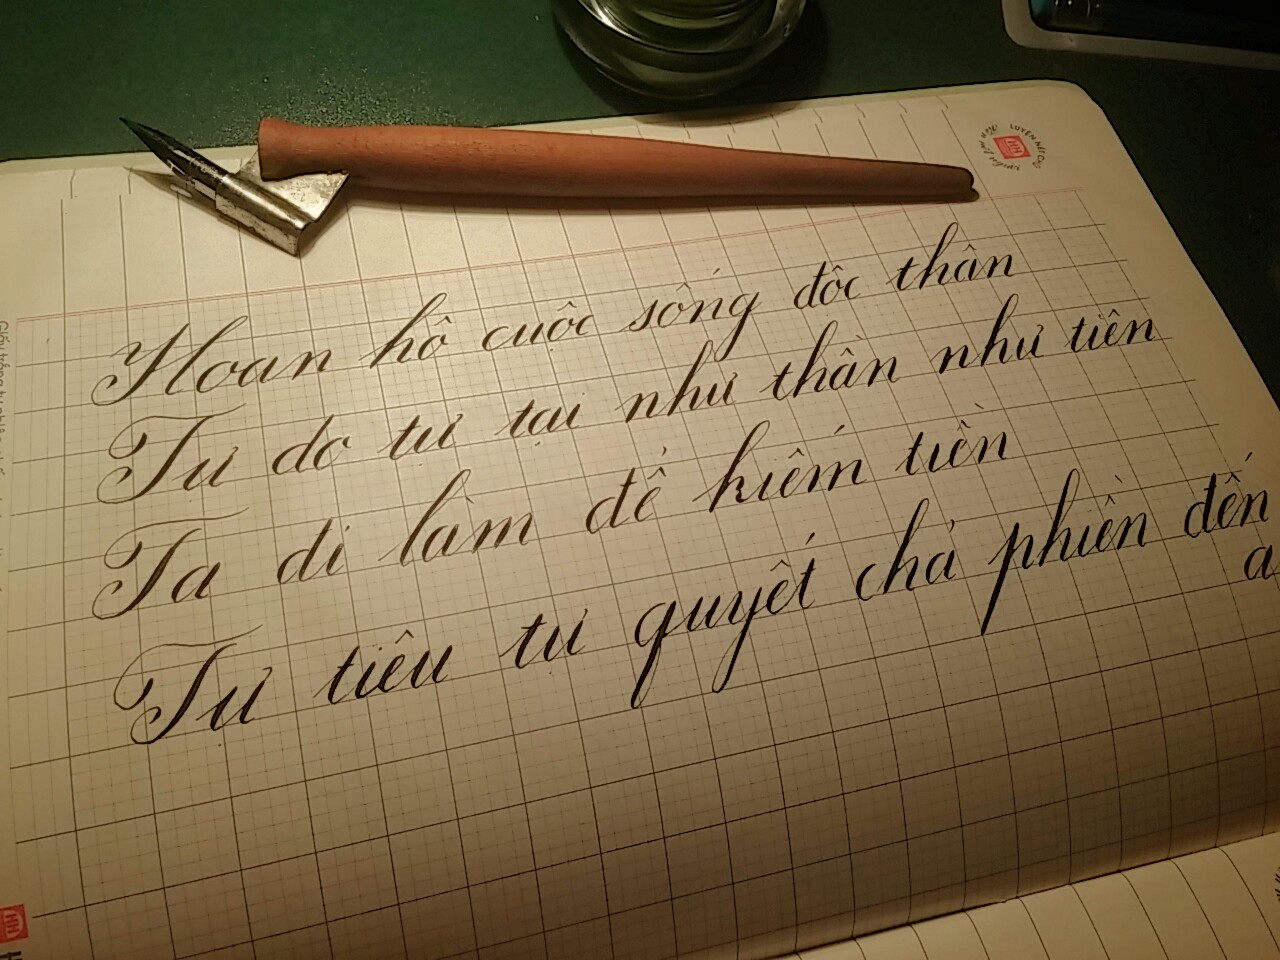 Hoan hô cuộc sống độc thân
Tự do tự tại như thần như tiên
Ta đi làm để kiếm tiền
Tự tiêu tự quyết chả phiền đến
a
LUYỆN NÉT CHỮ
HN